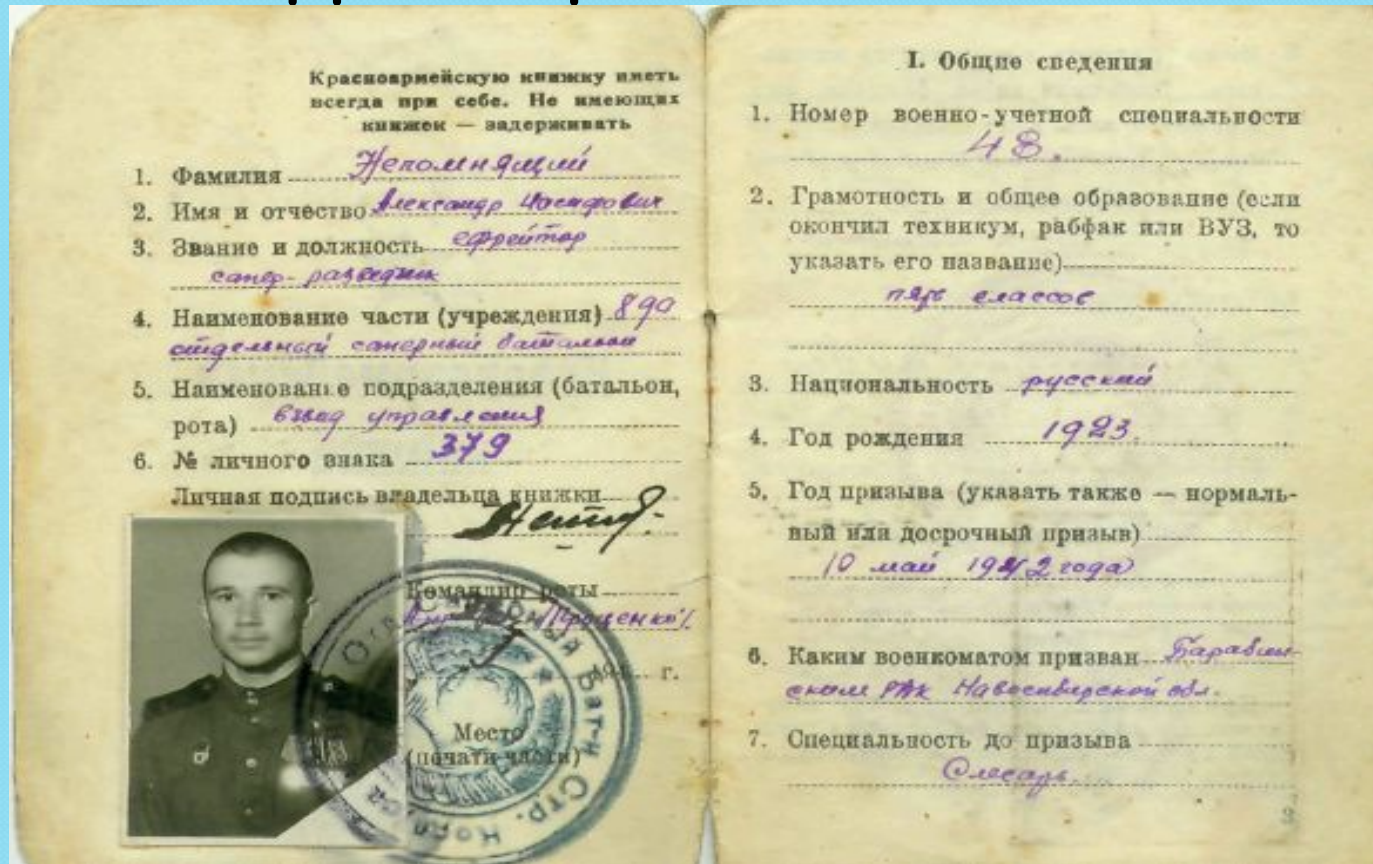 Красноармейскую книжку иметь
всегда при себе. Не имеющих
книжек — задерживать
1. Фамилия Непомнящий
2. Имя и отчество Александр Иосифович
3. Звание и должность ефрейтор
сапер-разведчик
4. Наименование части (учреждения) 890
отдельный саперный батальон
5. Наименование подразделения (батальон,
рота) взвод управления
6. № личного знака 379
Личная подпись владельца книжки
Командир роты
Проценко/
194 г.
Место
(печати части)
Саперный Бат-н Стр.
I. Общие сведения
1. Номер военно-учетной специальности
48.
2. Грамотность и общее образование (если
окончил техникум, рабфак или ВУЗ, то
указать его название)
пять классов
3. Национальность русский
4. Год рождения 1923.
5. Год призыва (указать также — нормаль-
ный или досрочный призыв)
10 май 1942 года
6. Каким военкоматом призван Барабин-
ским РВК Новосибирской обл.
7. Специальность до призыва
Слесарь.
3